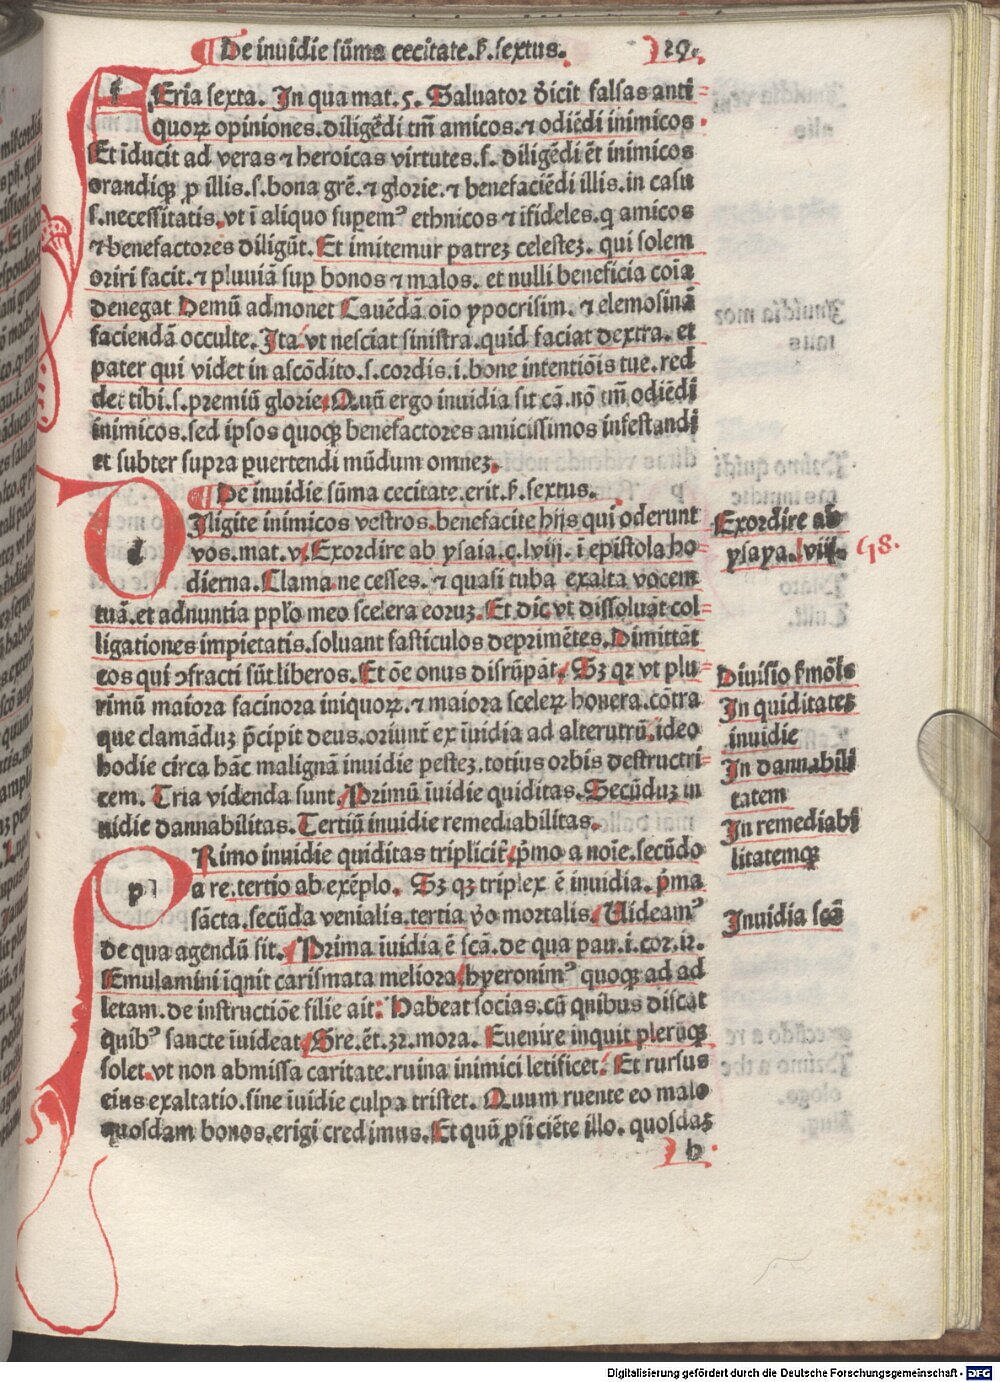 De inuidie sūma cecitate.ẜ.sextus. 29.
fEria sexta. In qua mat.5. Saluator dicit falsas anti=
quoꝝ opiniones.diligēdi tm̄ amicos.⁊ odiēdi inimicos
Et īducit ad veras ⁊ heroicas virtutes.s. diligēdi ēt inimicos
orandiqꝫ ꝓ illis.s.bona grē.⁊ glorie.⁊ benefaciēdi illis.in casu
s.necessitatis.vt ī aliquo superemꝰ ethnicos ⁊ ifideles.q amicos
⁊ benefactores diligūt. Et imitemur patreꝫ celesteꝫ. qui solem
oriri facit.⁊ pluuiā sup bonos ⁊ malos. et nulli beneficia coīa
denegat Demū admonet Cauēdā oīo ypocrisim. ⁊ elemosinā
faciendā occulte. Ita vt nesciat sinistra.quid faciat dextra. et
pater qui videt in ascōdito.s.cordis.i.bone intentiōis tue.red
det tibi.s.premiū glorie. Quū ergo inuidia sit cā.nō tm̄ odiēdi
inimicos.sed ipsos quoqꝫ benefactores amicissimos infestandi
et subter supra puertendi mūdum omneꝫ.
De inuidie sūma cecitate.erit.ẜ.sextus.
dIligite inimicos vestros.benefacite hijs qui oderunt
vos.mat.v. Exordire ab ysaia.c.lviij. ī epistola ho=
dierna. Clama.ne cesses. ⁊ quasi tuba exalta vocem
tuā.et adnuntia ppl̄o meo scelera eoruꝫ. Et dic.vt dissoluāt col=
ligationes impietatis.soluant fasticulos deprimētes.Dimittāt
eos qui ↄfracti sūt liberos. Et ōe onus disrūpāt. Sꝫ qꝛ vt plu=
rimū maiora facinora iniquoꝝ.⁊ maiora sceleꝝ honera.cōtra
que clamāduꝫ p̄cipit deus.oriunt̄ ex īuidia ad alterutrū.ideo
hodie circa hāc malignā inuidie pesteꝫ.totius orbis destructri=
cem. Tria videnda sunt. Primū īuidie quiditas.Secūduꝫ in
uidie dannabilitas.Tertiū inuidie remediabilitas.
pRimo inuidie quiditas triplicit̄.p̄mo a noīe.secūdo
a re.tertio ab exēplo. Sꝫ qꝫ triplex ē inuidia. p̄ma
sācta.secūda venialis.tertia v̄o mortalis. Uideamꝰ
de qua agendū sit. Prima īuidia ē scā.de qua pau.i.cor.12.
Emulamini īqnit carismata meliora hyeronimꝰ quoqꝫ ad ad
letam.de instructiōe filie ait: Habeat socias.cū quibus discat
quibꝰ sancte īuideat. Gre.ēt.32.mora. Euenire inquit plerūqꝫ
solet.vt non abmissa caritate.ruina inimici letificet. Et rursus
eius exaltatio.sine iuidie culpa tristet. Quum ruente eo malo
quosdam bonos.erigi credimus. Et quū ꝓficiēte illo. quosdaꝫ
h
Exordire ab
ysaya.lviij.
58.
Diuisio ẜmōis
In quiditates
inuidie
In dannabili
tatem
In remediabi
litatemqꝫ
Inuidia scā
Digitalisierung gefördert durch die Deutsche Forschungsgemeinschaft - DFG